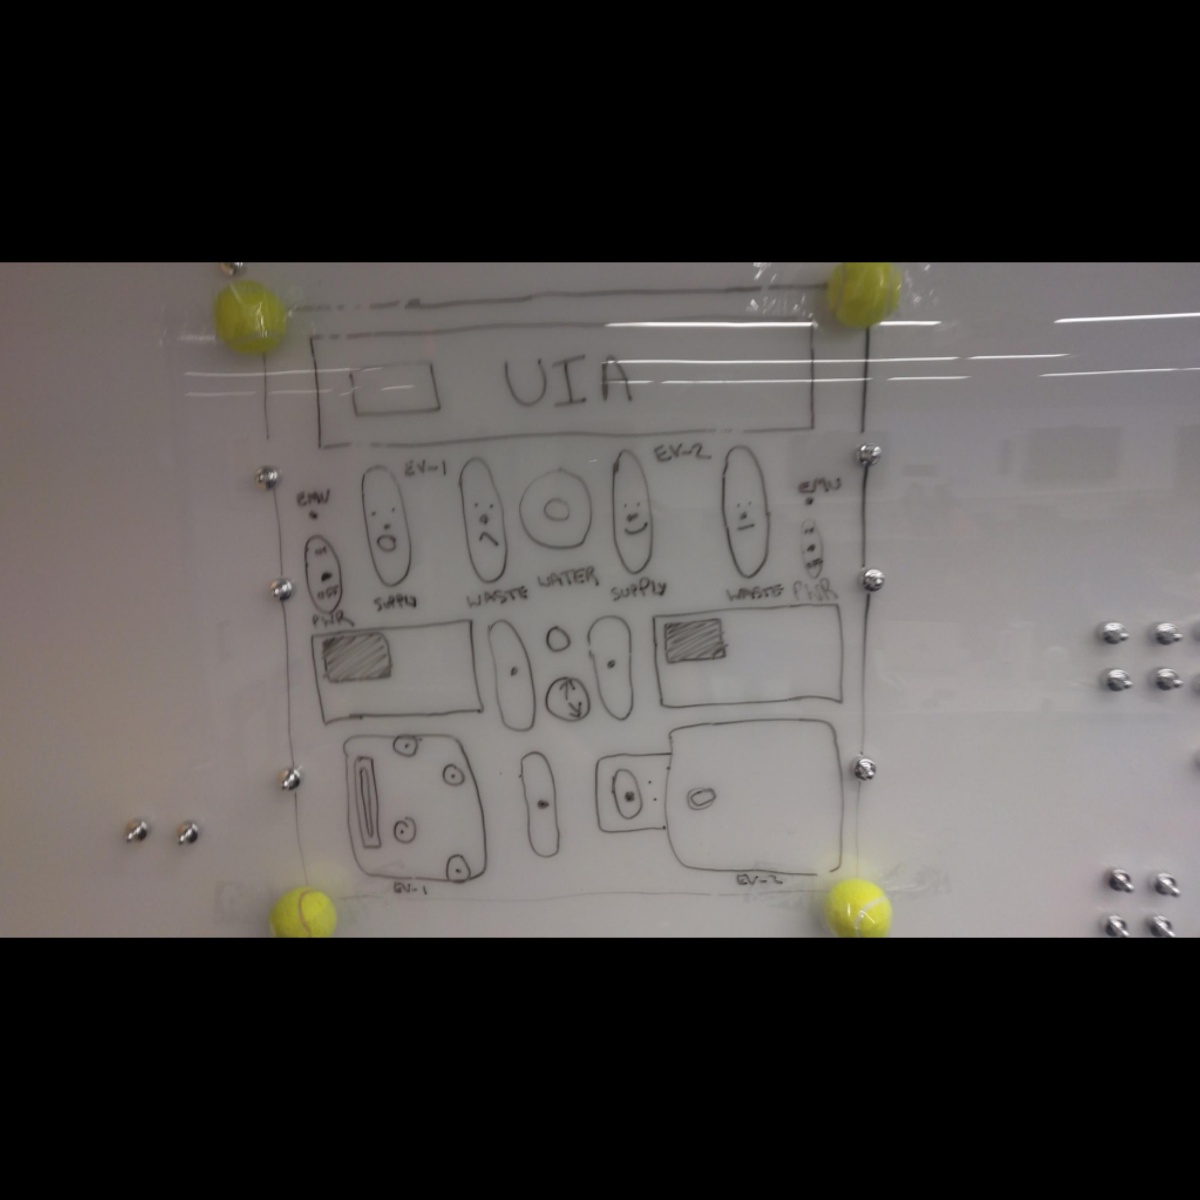 UIA
EV-1
EV-2
EMU
EMU
OFF
OFF
PWR
SUPPLY
WASTE
WATER
SUPPLY
WASTE
PWR
EV-1
EV-2